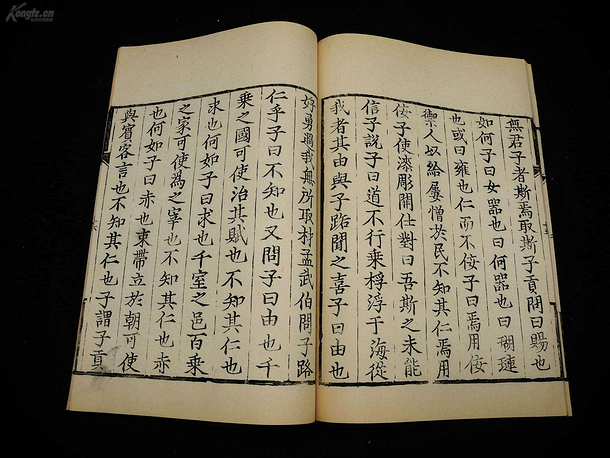 Kongfz.cn
無君子者斯焉取斯子貢問曰賜也
如何子曰女器也曰何器也曰瑚璉
也或曰雍也仁而不佞子曰焉用佞
禦人以口給屢憎於民不知其仁焉用
佞子使漆彫開仕對曰吾斯之未能
信子說子曰道不行乗桴浮于海從
我者其由與子路聞之喜子曰由也
好勇過我無所取材孟武伯問子路
仁乎子曰不知也又問子曰由也千
乗之國可使治其賦也不知其仁也
求也何如子曰求也千室之邑百乗
之家可使為之宰也不知其仁也赤
也何如子曰赤也束帶立於朝可使
與賓客言也不知其仁也子謂子貢